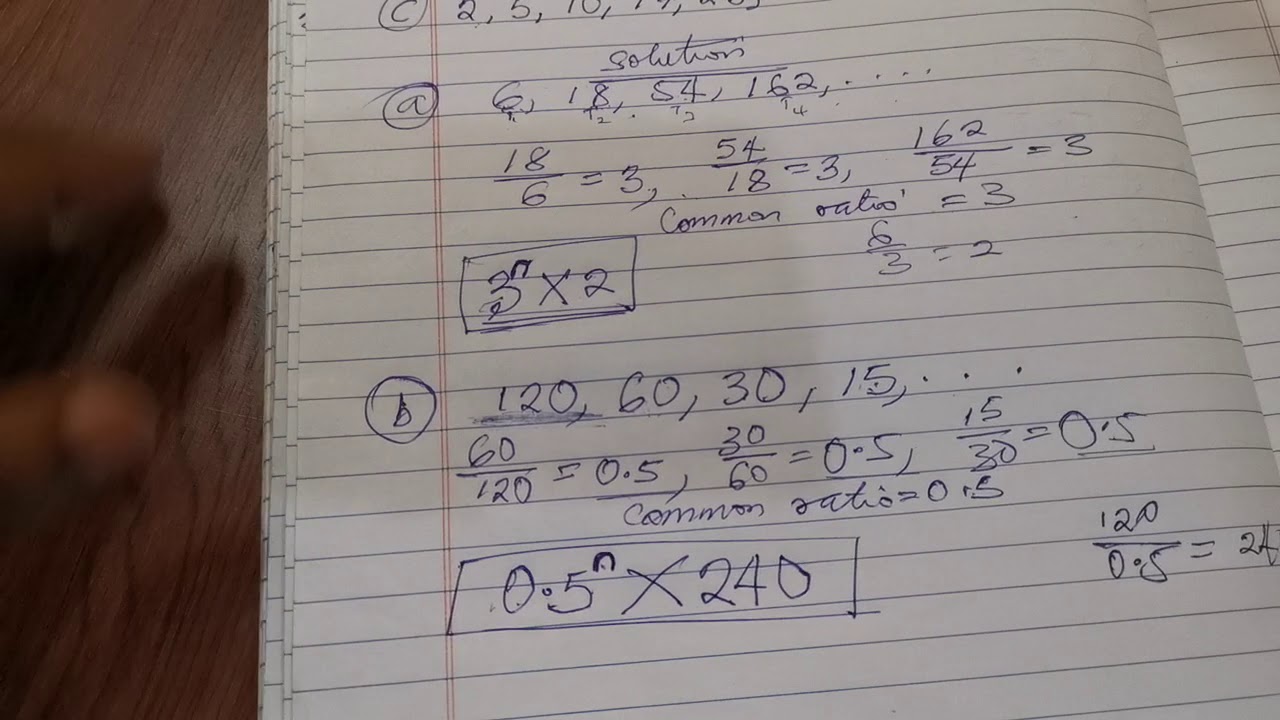 (C) 2, 5, 10,
solution
(a) 6, 18, 54, 162, ....
T1 T2 T3 T4
18/6 = 3, 54/18 = 3, 162/54 = 3
Common ratio = 3
6/3 = 2
3ⁿ × 2
(b) 120, 60, 30, 15, ...
60/120 = 0.5, 30/60 = 0.5, 15/30 = 0.5
Common ratio = 0.5
120/0.5 = 24
0.5ⁿ × 240